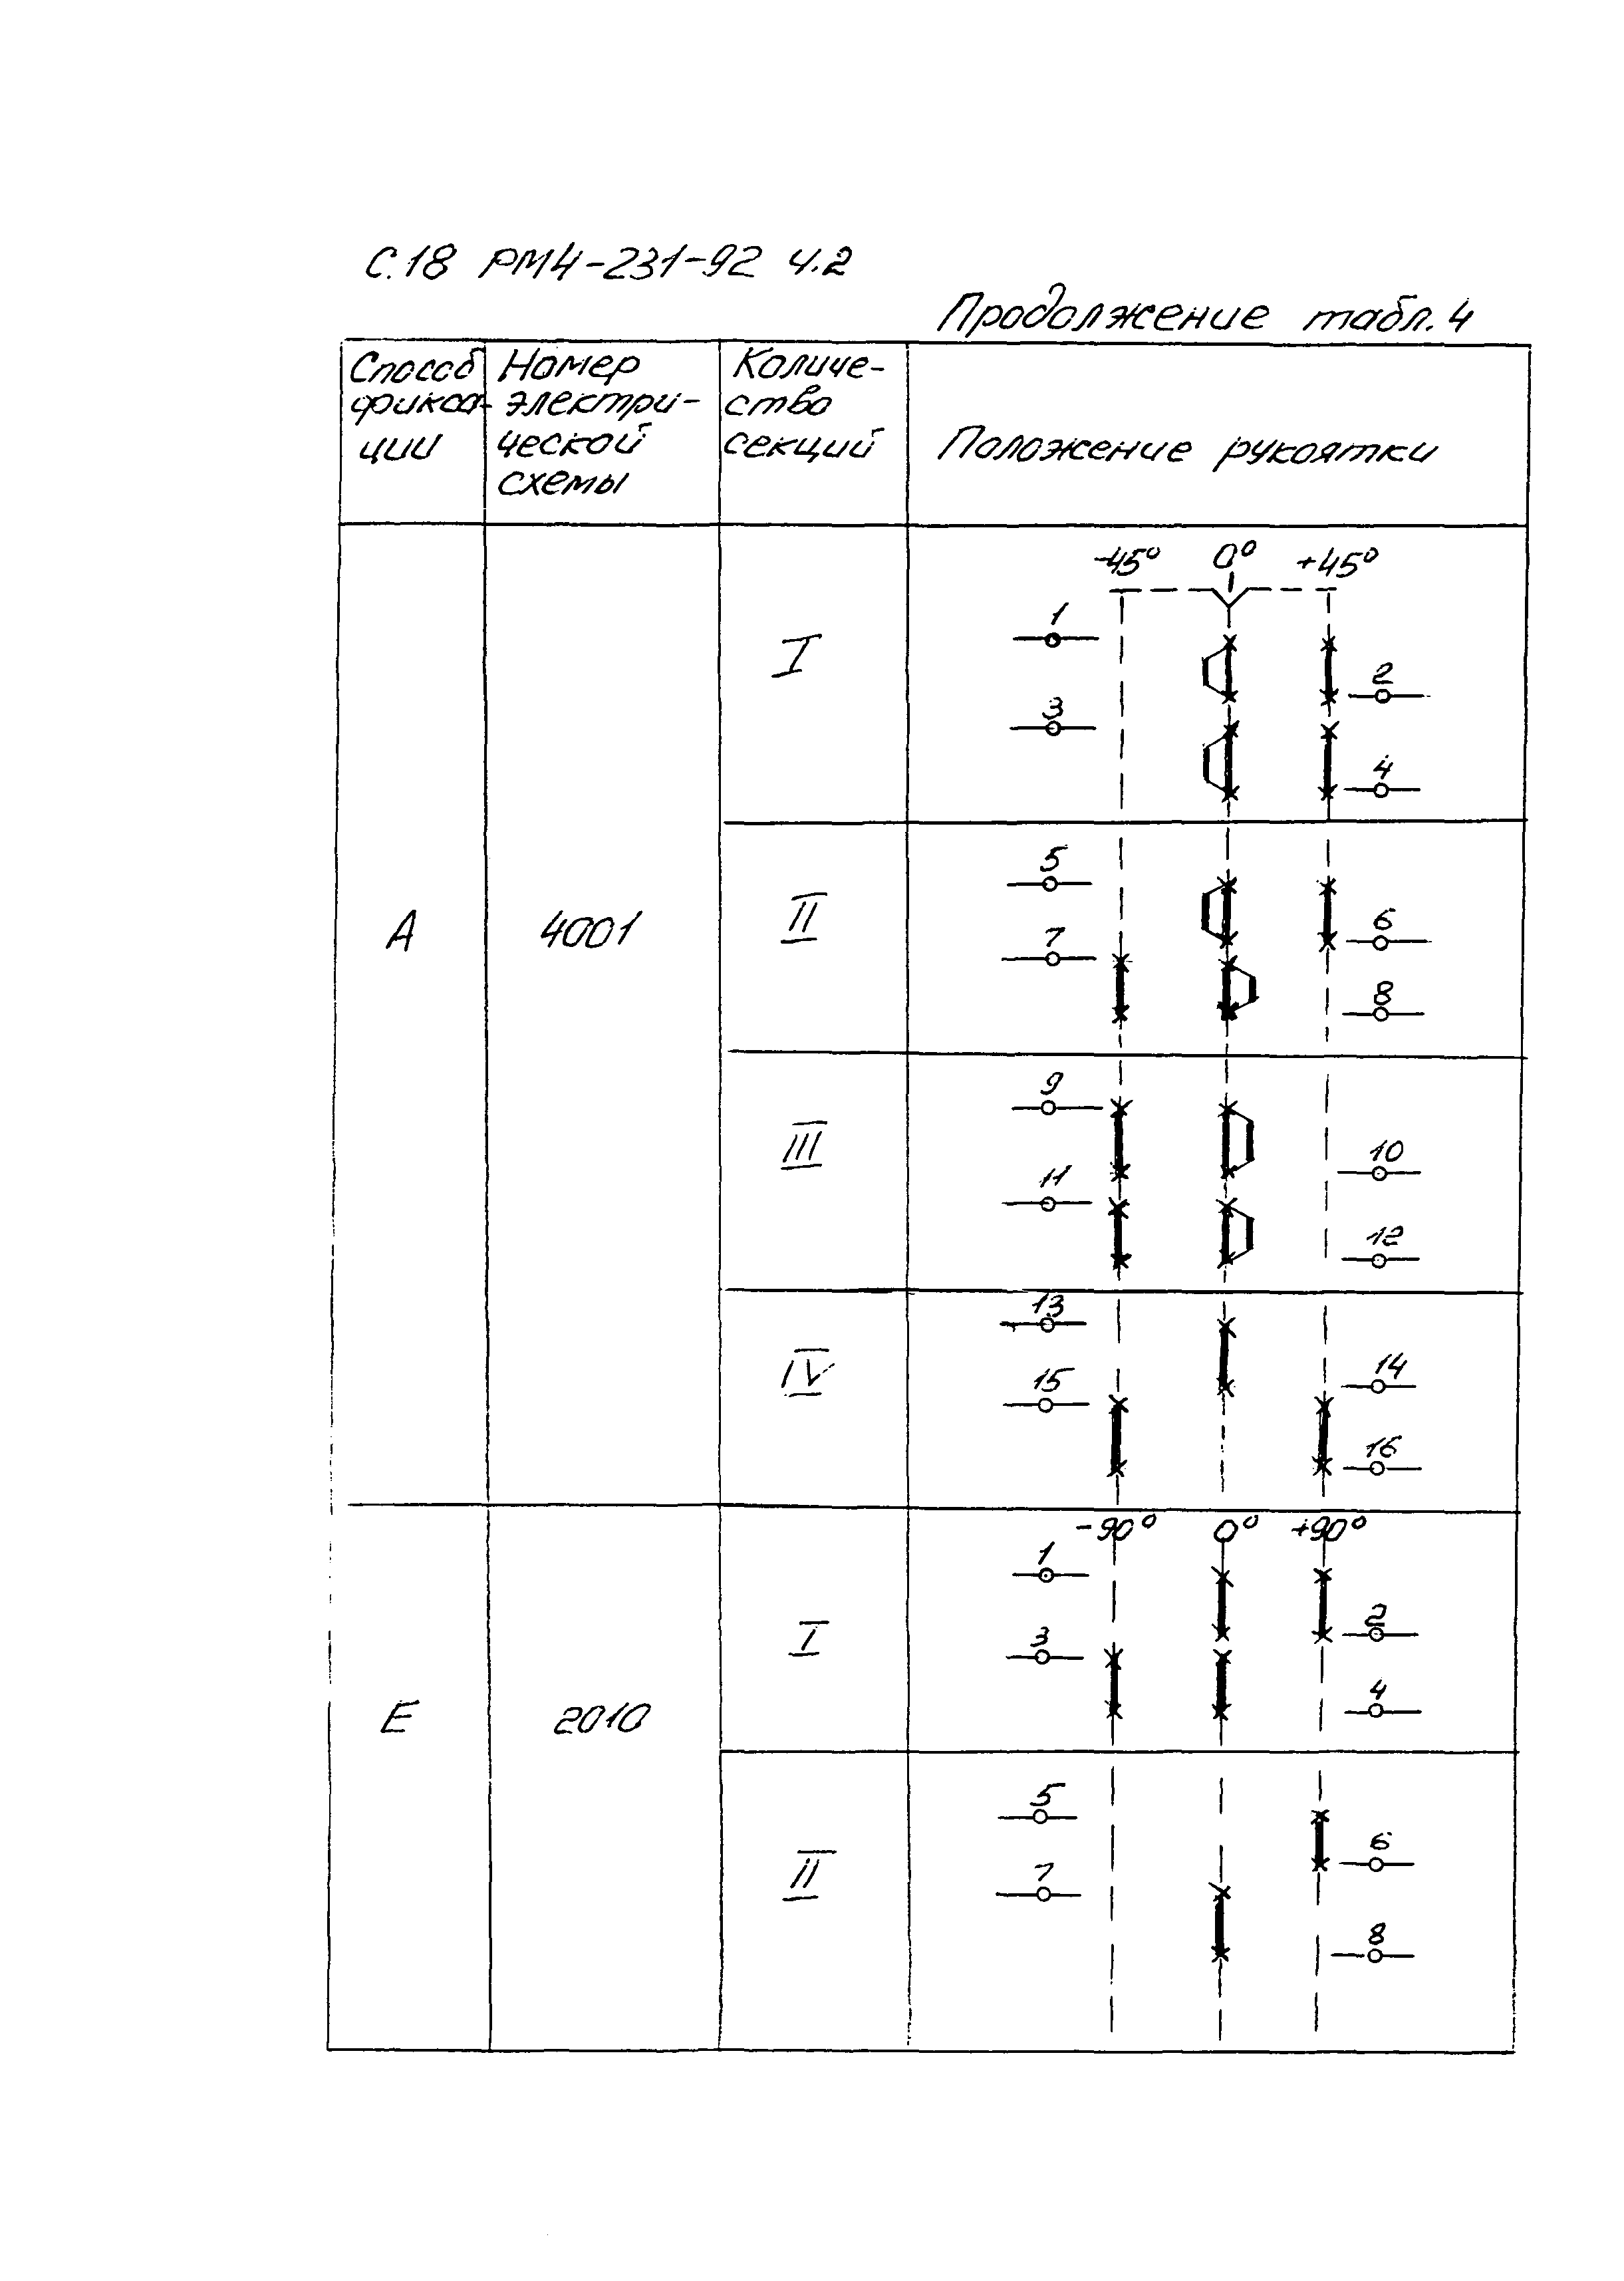 С.18 РМ4-231-92 ч.2
Продолжение табл. 4
Способ
фикса-
ции
Номер
электри-
ческой
схемы
Количе-
ство
секций
Положение рукоятки
А
4001
I
-45° 0° +45°
1
2
3
4
II
5
6
7
8
III
9
10
11
12
IV
13
14
15
16
Е
2010
I
-90° 0° +90°
1
2
3
4
II
5
6
7
8